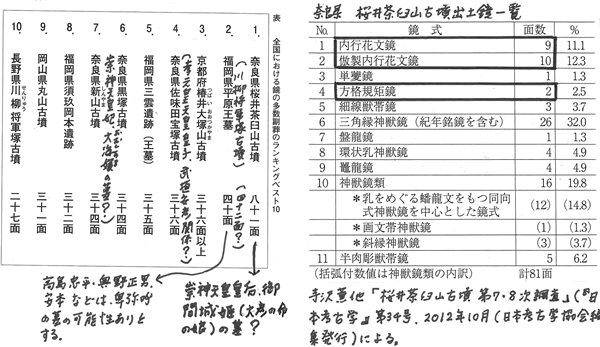 表 全国における鏡の多数副葬のランキングベスト10
1. 奈良県桜井茶臼山古墳 八十一面
(川柳将軍塚古墳) (四十二面?)
2. 福岡県平原王墓 四十面
3. 京都府椿井大塚山古墳 三十六面以上
つばいおおつかやま
4. 奈良県佐味田宝塚古墳 三十六面
5. 福岡県三雲遺跡(王墓) 三十五面
6. 奈良県黒塚古墳 三十四面
7. 奈良県新山古墳 三十四面
8. 福岡県須玖岡本遺跡 三十二面
9. 岡山県丸山古墳 三十一面
10. 長野県川柳将軍塚古墳 二十七面
高島忠平・奥野正男、
安本などは、卑弥呼
の墓の可能性ありと
する。
崇神天皇皇后、御
間城姫(大彦の命
の姫)の墓?
奈良県 桜井茶臼山古墳出土鏡一覧
No. 鏡式 面数 %
1 内行花文鏡 9 11.1
2 倣製内行花文鏡 10 12.3
3 単夔鏡 1 1.3
4 方格規矩鏡 2 2.5
5 細線獣帯鏡 3 3.7
6 三角縁神獣鏡(紀年銘鏡を含む) 26 32.0
7 盤龍鏡 1 1.3
8 環状乳神獣鏡 4 4.9
9 鼉龍鏡 4 4.9
10 神獣鏡類 16 19.8
*乳をめぐる蟠龍文をもつ同向
式神獣鏡を中心とした鏡式 (12) (14.8)
*画文帯神獣鏡 (1) (1.3)
*斜縁神獣鏡 (3) (3.7)
11 半肉彫獣帯鏡 5 6.2
(括弧付数値は神獣鏡類の内訳) 計81面
寺沢薫他「桜井茶臼山古墳 第7・8次調査」(『日
本考古学』第34号、2012年10月(日本考古学協会編
集発行)による。